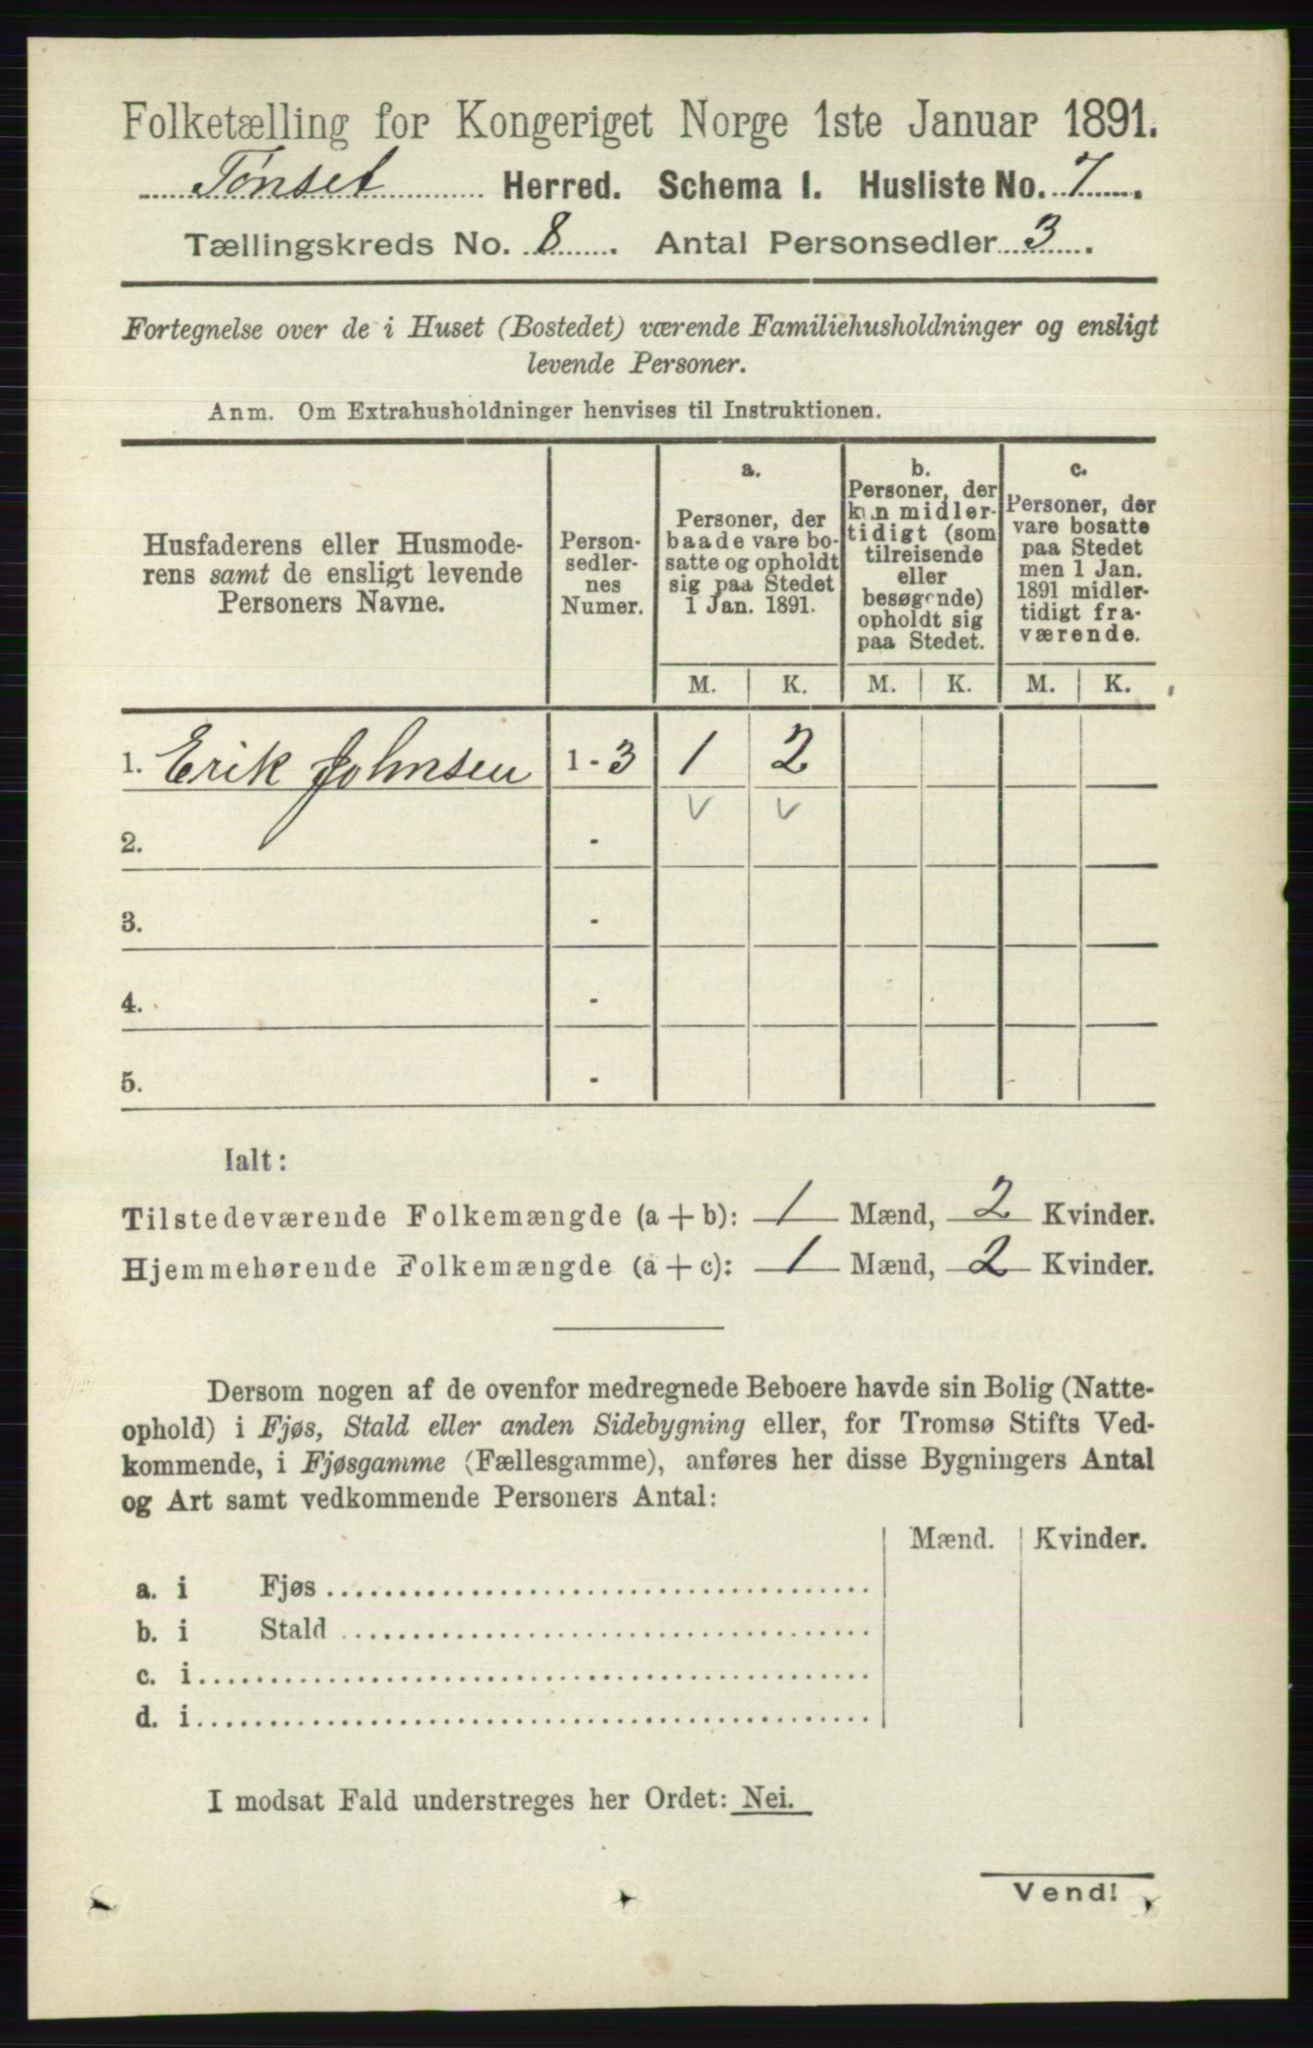 Folketælling for Kongeriget Norge 1ste Januar 1891.
Tønset Herred. Schema I. Husliste No. 7.
Tællingskreds No. 8. Antal Personsedler 3.
Fortegnelse over de i Huset (Bostedet) værende Familiehusholdninger og ensligt
levende Personer.
Anm. Om Extrahusholdninger henvises til Instruktionen.
Husfaderens eller Husmode-
rens samt de ensligt levende
Personers Navne.
Person-
sedler-
nes
Numer.
a.
Personer, der
baade vare bo-
satte og opholdt
sig paa Stedet
1 Jan. 1891.
b.
Personer, der
kun midler-
tidigt (som
tilreisende
eller
besøgende)
opholdt sig
paa Stedet.
c.
Personer, der
vare bosatte
paa Stedet
men 1 Jan.
1891 midler-
tidigt fra-
værende.
M. K. M. K. M. K.
1. Erik Johnsen 1 - 3 1 2
v v
2. -
3. -
4. -
5. -
Ialt:
Tilstedeværende Folkemængde (a + b): 1 Mænd, 2 Kvinder.
Hjemmehørende Folkemængde (a + c): 1 Mænd, 2 Kvinder.
Dersom nogen af de ovenfor medregnede Beboere havde sin Bolig (Natte-
ophold) i Fjøs, Stald eller anden Sidebygning eller, for Tromsø Stifts Ved-
kommende, i Fjøsgamme (Fællesgamme), anføres her disse Bygningers Antal
og Art samt vedkommende Personers Antal:
Mænd. Kvinder.
a. i Fjøs
b. i Stald
c. i
d. i
I modsat Fald understreges her Ordet: Nei.
Vend!